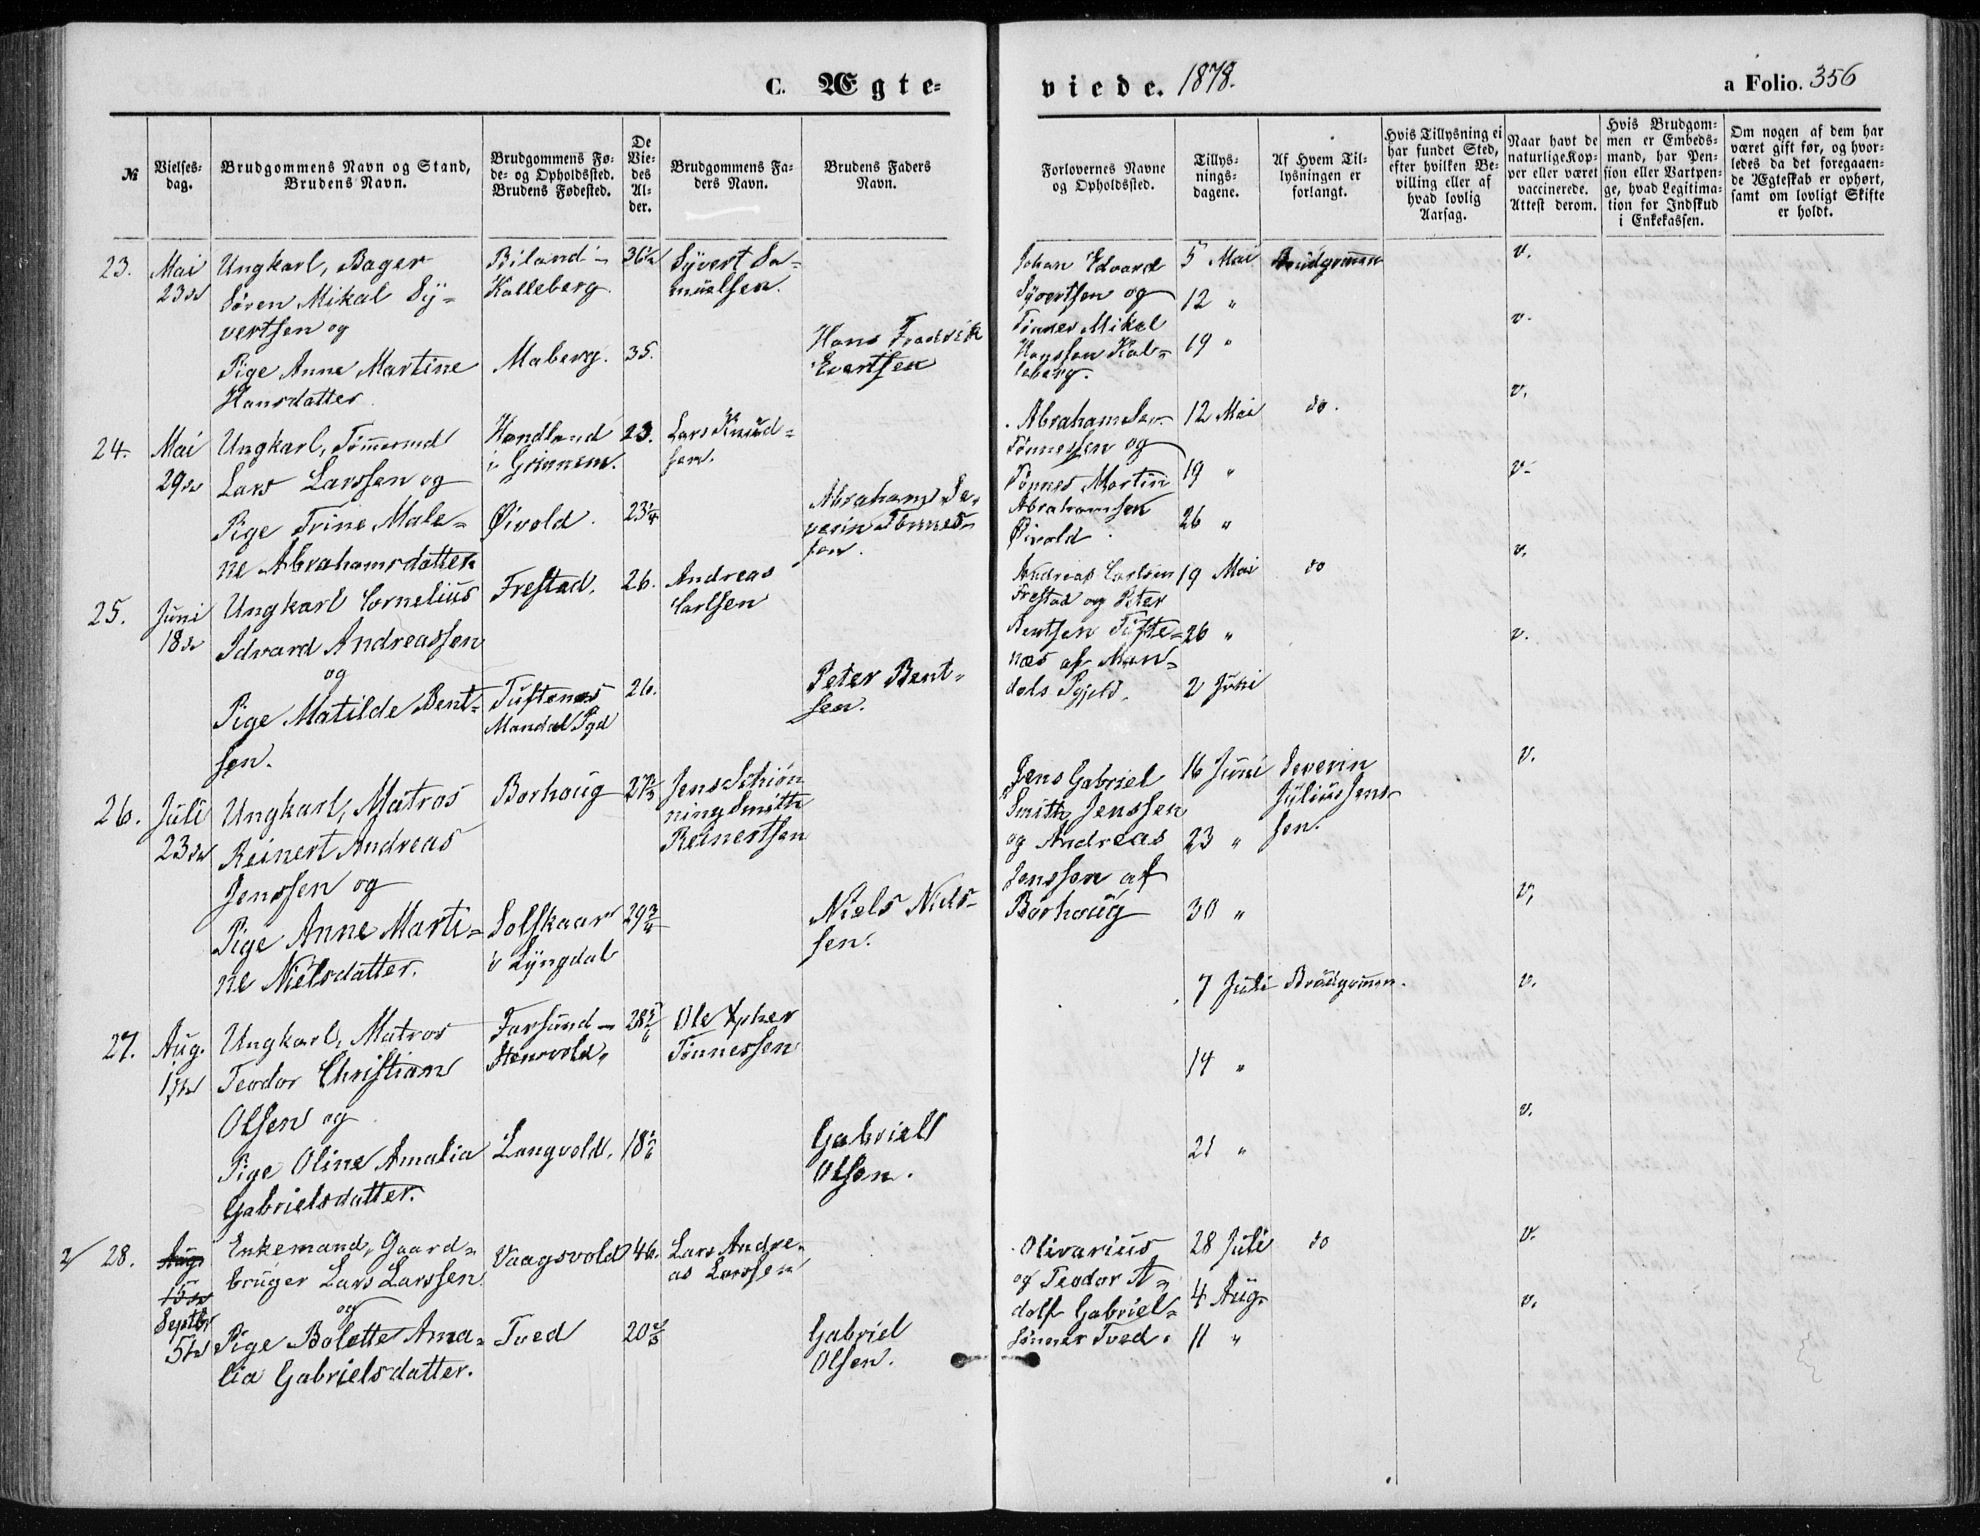 C. Ægte-
viede. 1878.
a Folio. 356
№
Vielses-
dag.
Brudgommens Navn og Stand,
Brudens Navn.
Brudgommens Fø-
de- og Opholdssted.
Brudens Fødested.
De
Vie-
des
Al-
der.
Brudgommens Fa-
ders Navn.
Brudens Faders
Navn.
Forlovernes Navne
og Opholdssted.
Tillys-
nings-
dagene.
Af Hvem Til-
lysningen er
forlangt.
Hvis Tillysning ei
har fundet Sted,
efter hvilken Be-
villing eller af
hvad lovlig
Aarsag.
Naar havt de
naturlige Kop-
per eller været
vaccinerede.
Attest derom.
Hvis Brudgom-
men er Embeds-
mand, har Pen-
sion eller Vartpen-
ge, hvad Legitima-
tion for Indskud
i Enkekassen.
Om nogen af dem har
været gift før, og hvor-
ledes da det foregaaen-
de Ægteskab er ophørt,
samt om lovligt Skifte
er holdt.
23.
Mai
23de
Ungkarl, Bager
Søren Mikal Sy-
vertsen og
Pige Anne Martine
Hansdatter
Biland -
Kalleberg.
Maberg.
36½
35.
Syvert Sa-
muelsen.
Hans Fredrik
Evertsen
Johan Edvard
Syvertsen og
Tønnes Mikal
Hanssen Kal-
leberg.
5 Mai
12 "
19 "
Brudgommen
v.
v.
24.
Mai
29de
Ungkarl, Tømmermd
Lars Larssen og
Pige Trine Male-
ne Abrahamsdatter
Handeland
i Grinnem.
Øivold.
23.
23¼
Lars Knud-
sen.
Abraham Se-
verin Tønnes-
sen.
Abraham Sev.
Tønnessen og
Tønnes Martin
Abrahamsen
Øivold.
12 Mai
19 "
26 "
do.
v.
v.
25.
Juni
18de
Ungkarl Cornelius
Edvard Andreassen
og
Pige Matilde Bent-
sen.
Frestad.
Tuftenes
Mandal Pgd
26.
26.
Andreas
Carlsen
Peter Bent-
sen.
Andreas Carlsen
Frestad og Peter
Bentsen Tufte-
næs af Man-
dals Pgjeld.
19 Mai
26 "
2 Juni
do
v.
v.
26.
Juli
23de
Ungkarl, Matros
Reinert Andreas
Jenssen og
Pige Anne Marti-
ne Nielsdatter.
Borhoug
Solskaar
i Lyngdal
29¾
Jens Schiøn
ning Smith
Reinertsen
Niels Niels-
sen.
Jens Gabriel
Smith Jenssen
og Andreas
Jenssen af
Borhoug
16 Juni
23 "
30 "
Severin
Juliussens-
sen.
v.
v.
27.
Aug.
1ste
Ungkarl, Matros
Teodor Christian
Olsen og
Pige Oline Amalia
Gabrielsdatter.
Farsund -
Stensvold.
Langvold.
28⅚
18
Ole Xpher
Tønnessen
Gabriel
Olsen.
7 Juli
14 "
21 "
Brudgommen.
v.
v.
2/ 28.
Aug
15de
Septbr
5te
Enkemand, Gaard-
bruger Lars Larssen
og
Pige Bolette Ama-
lia Gabrielsdatter.
Vaagsvold
Tved
46.
20⅔
Lars Andre-
as Larssen
Gabriel
Olsen.
Olivarius
og Teodor A-
dolf Gabriel-
sønner Tved.
28 Juli
4 Aug.
11 "
do
v.
v.